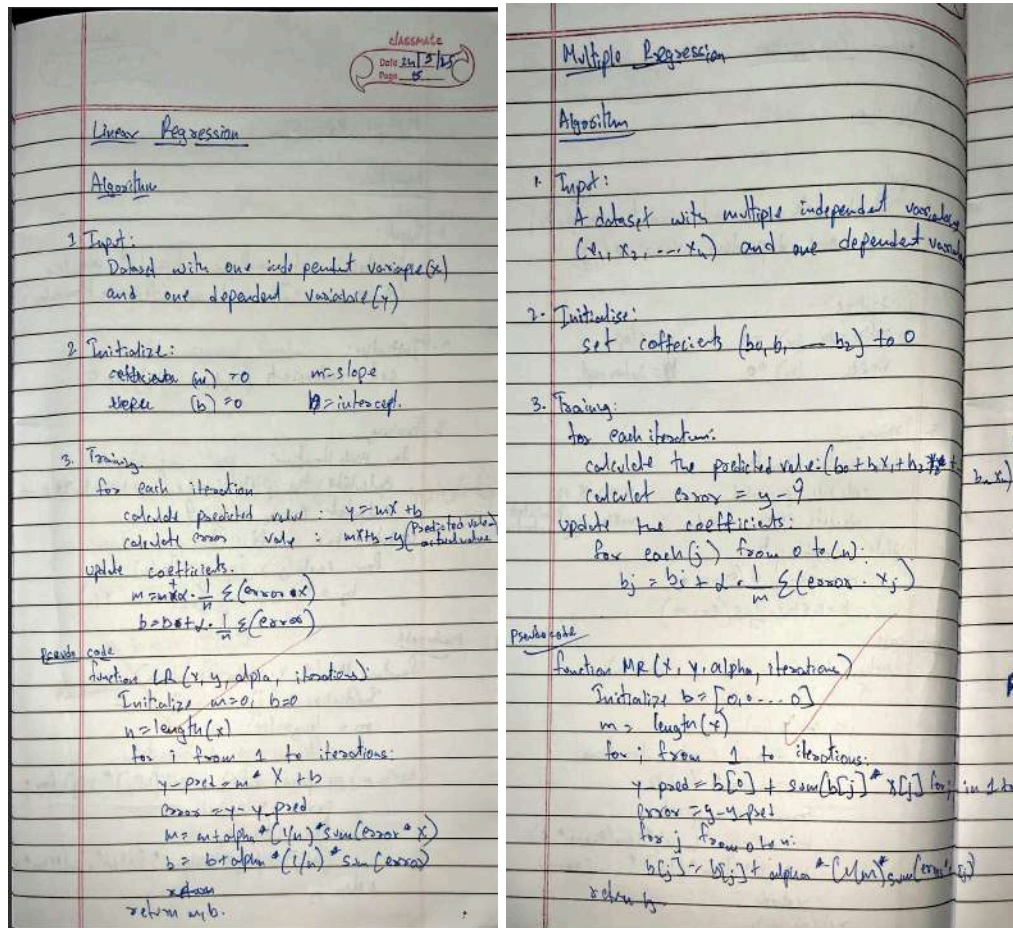 classmate
Date 24/3/25
Page 5
Linear Regression
Algorithm
1 Input:
Dataset with one inde pendent variable (x)
and one dependent variable (y)
2 Initialize:
coefficients (m) = 0 m-slope
(b) = 0 b = intercept.
3. Training
for each iteration
calculate predicted value : y = mx + b
calculate error value : mx+b - y (Predicted value
actual value
update coefficients.
m = m + α . 1/n Σ (error * x)
b = b + α . 1/n Σ (error)
Pseudo code
function LR (x, y, alpla, iterations):
Initialize m=0, b=0
n = length (x)
for i from 1 to iterations:
y-pred = m * X + b
error = y - y_pred
m = m + alpha * (1/n) * sum (error * X)
b = b + alpha * (1/n) * sum (error)
return
return m, b.
Multiple Regression
Algorithm
1. Input:
A dataset with multiple independent variables
(x1, x2, ... xn) and one dependent
2. Initialise:
set coffecients (b0, b1 — b2) to 0
3. Training:
for each iteration:
calculate the predicted value: (b0 + b1x1 + b2x2 + bn xn)
calculet error = y - ŷ
update the coefficients:
for each (j) from 0 to (n):
bj = bj + α . 1/m Σ (error . xj)
Pseudo code
function MR (X, y, alpha, iterations)
Initialize b = [0, 0 ... 0]
m = length (x)
for i from 1 to iterations:
y-pred = b[0] + sum (b[j] * x[j] for j in 1 to
error = y - y_pred
for j from 0 to n:
b[j] = b[j] + alpha * (1/m) * sum (error * x[j])
return b